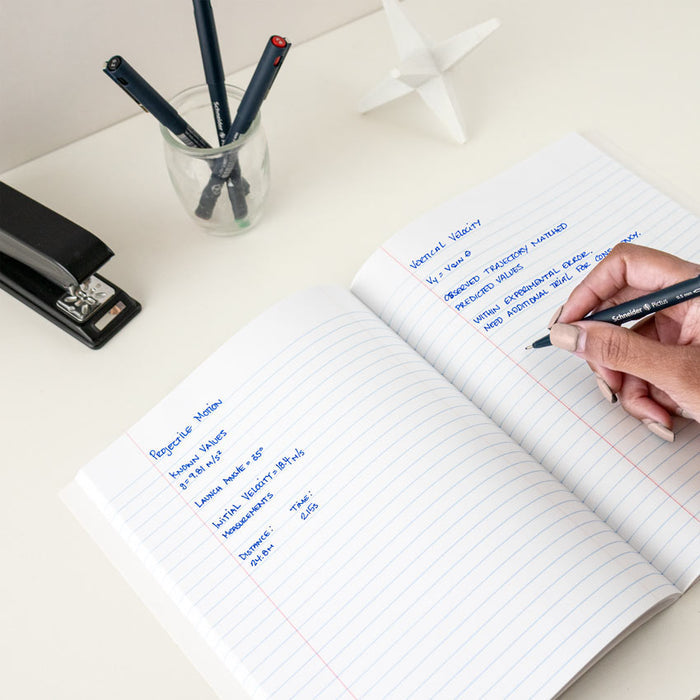 Projectile Motion
Known Values
g = 9.81 m/s²
Launch Angle = 35°
Initial Velocity = 18.4 m/s
Measurements
Distance: Time:
24.8m 2.15s
Vortical Velocity
Vy = V sin θ
Observed trajectory matched
predicted values
within experimental error.
Need additional trial for
Schneider Pictus
Schneider Pictus